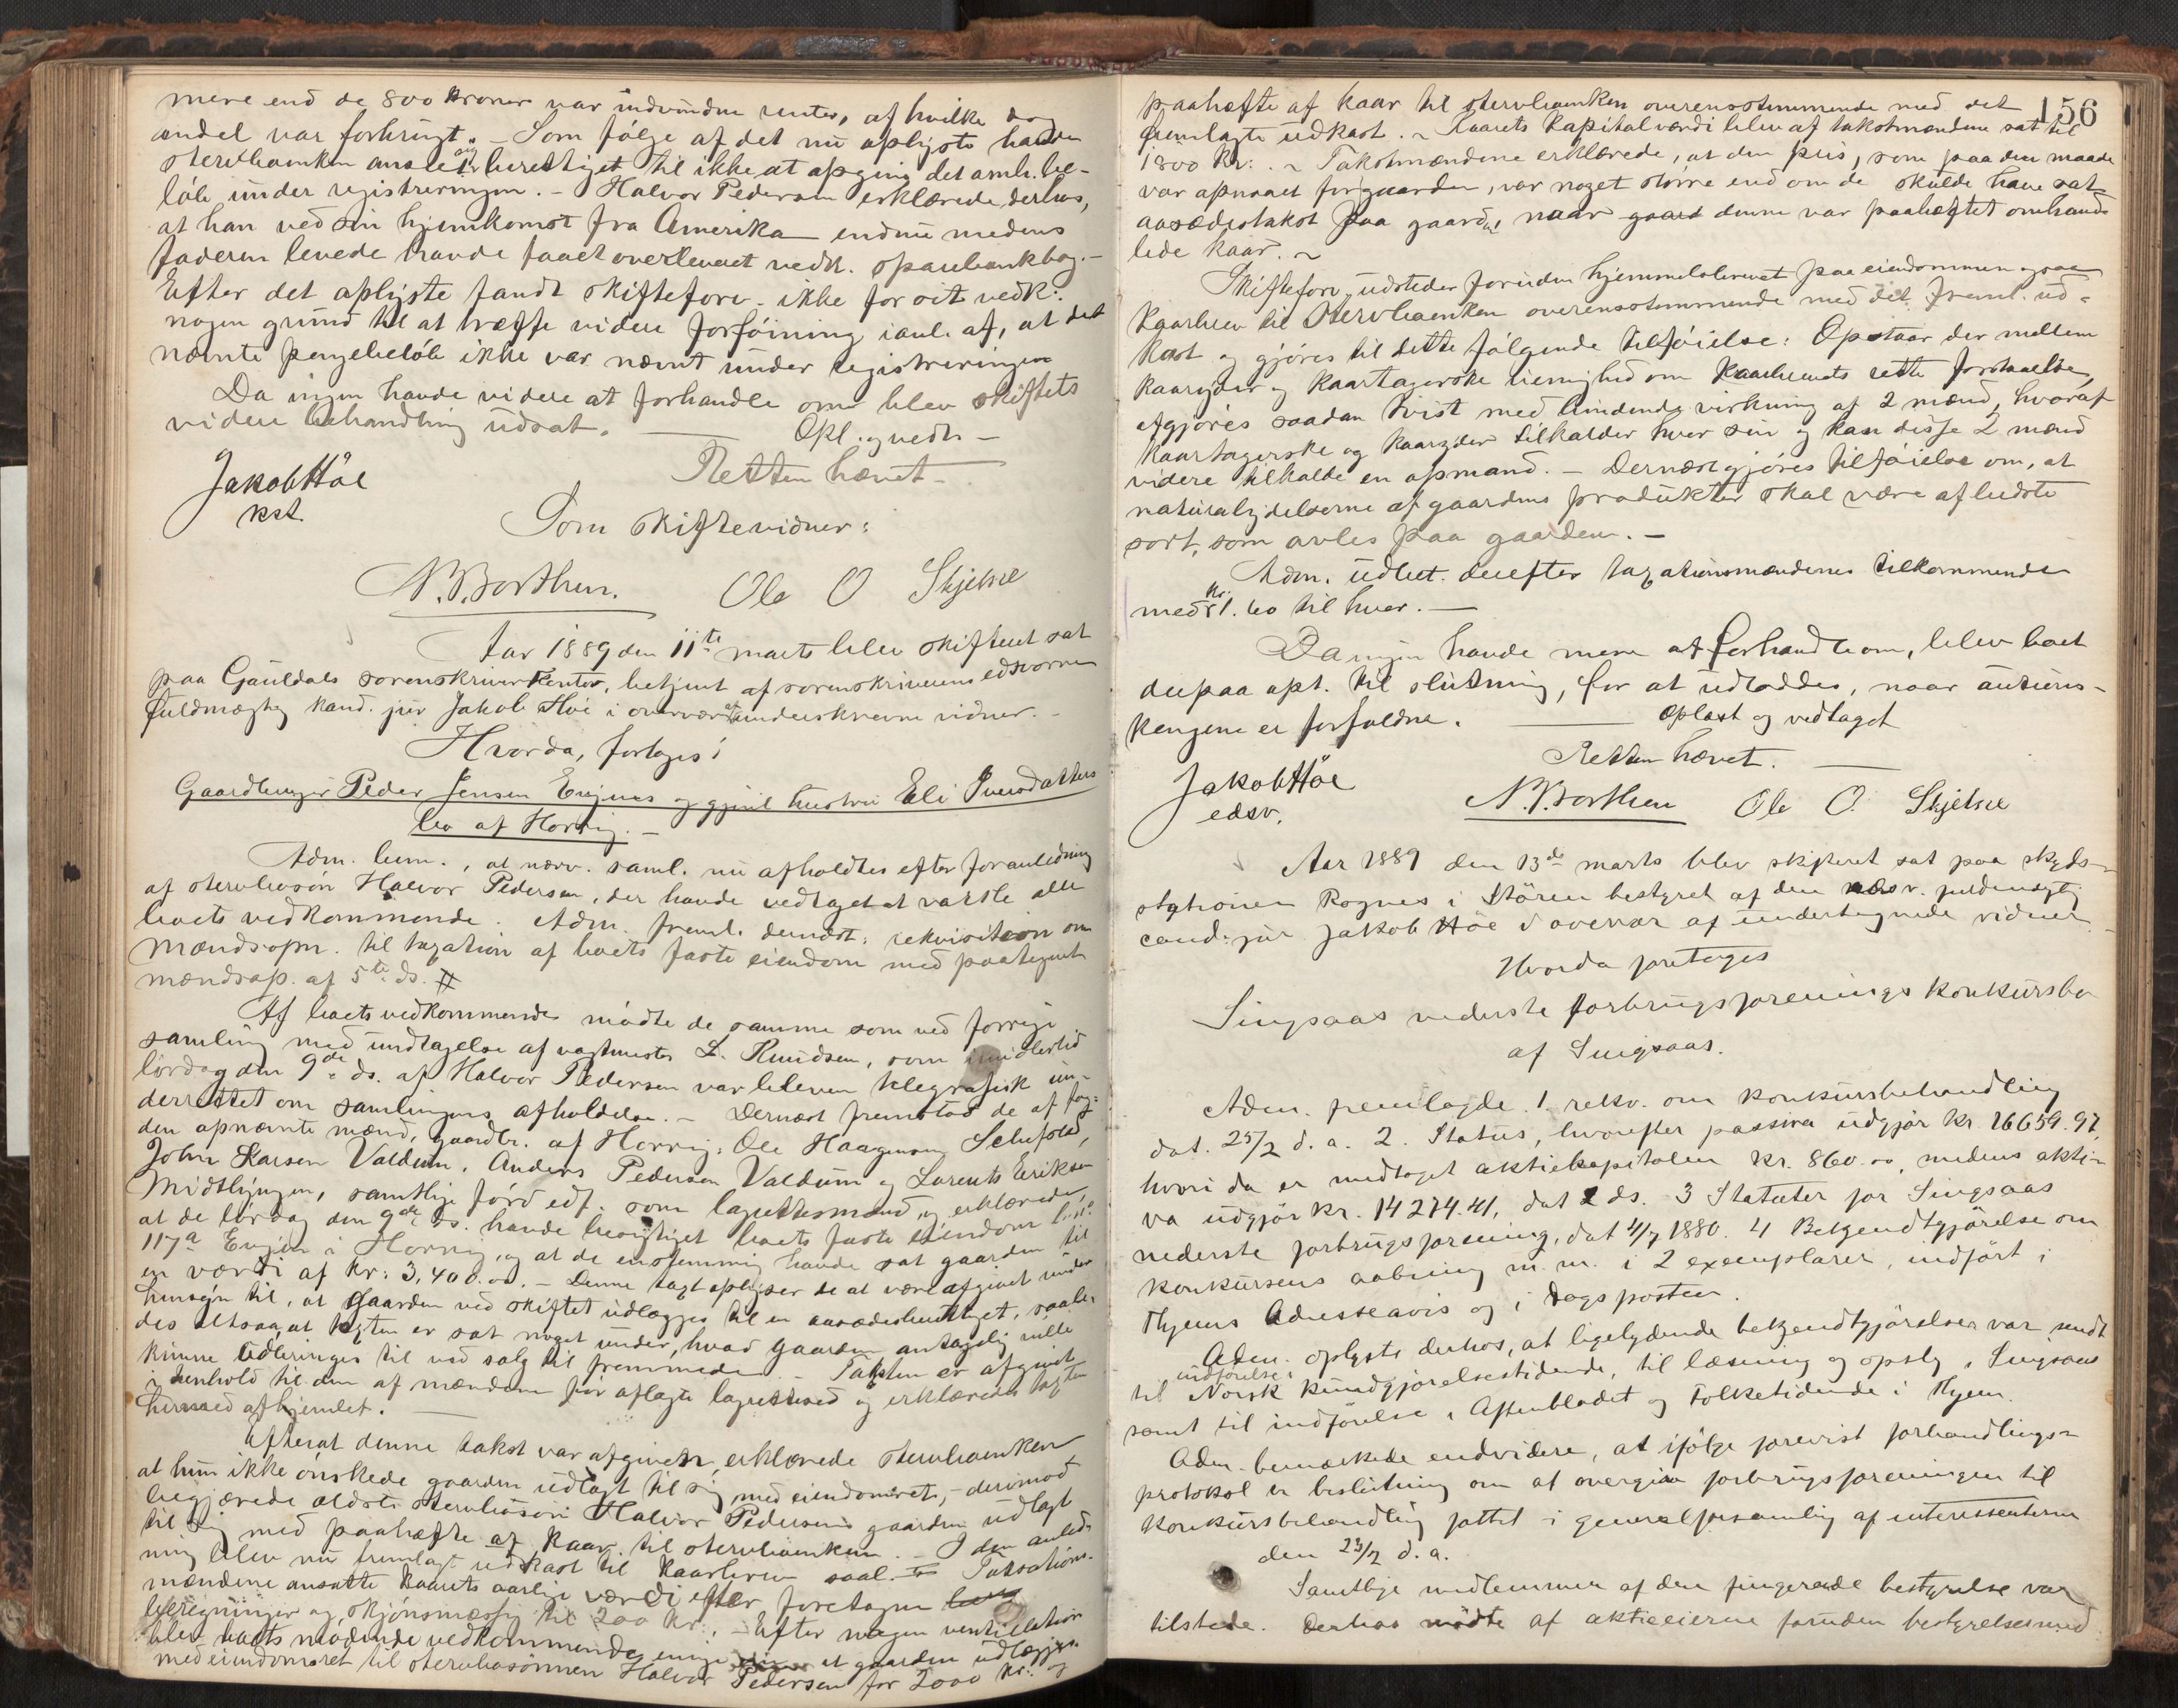 mere end de 800 kroner var indvundne renter, af hvilke dog
andel var forbrugt. – Som følge af det nu oplyste havde
stervboenken anseet sig berettiget til ikke at opgive det omh. be-
løb under registreringen. – Halvor Pedersen erklærede derhos,
at han ved sin hjemkomst fra Amerika endnu medens
faderen levede havde faaet overleveret vedk. sparebankbog. –
Efter det oplyste fandt skifteforv. ikke for sit vedk.
nogen grund til at træffe videre forføining i anl. af, at det
nævnte pengebeløb ikke var nævnt under registreringen
Da ingen havde videre at forhandle om blev skiftets
videre behandling udsat. Opl. og vedt. –
Retten hævet –
Jakob Høe
kst.
Som skiftevidner:
N. P. Borthen. Ole O Skjelsæ
Aar 1889 den 11te marts blev skifteret sat
paa Gauldals sorenskriverkontor, betjent af sorenskriverens edsvorne
fuldmægtig kand. jur Jakob Høe i overvær af underskrevne vidner. –
Hvorda, fortoges:
Gaardbruger Peder Jensen Engens og gjenl. hustru Eli Iversdatters
bo af Horrig. –
Adm. bem., at nærv. saml. nu afholdtes efter foranledning
af stervbosøn Halvor Pedersen, der havde vedtaget at varsle alle
boets vedkommende. Adm. freml. dernæst: rekvisition om
mandsopn. til taxation af boets faste eiendom med paategnet
mandsop. af 5te ds. #
Af boets vedkommende mødte de samme som ved forrige
samling med undtagelse af vagtmester L. Knudsen, som imidlertid
lørdag den 9de ds. af Halvor Pedersen var bleven telegrafisk un-
derrettet om samlingens afholdelse. – Dernæst fremstod de af fog-
den opnævnte mænd, gaardbr. af Horrig: Ole Haagensen
John Larsen Valdum, Anders Pedersen Valdum og Lorents Eriksen
Midtlyngen, samtlige førd edf. som lagrettesmænd og erklærede,
at de lørdag den 9de ds. havde besigtiget boets faste eiendom
117a Engen i Horrig, og at de enstemmig havde sat gaarden til
en værdi af Kr: 3,400.00. – Denne takst oplyser de at være afgivet under
hensyn til, at gaarden ved skiftet udlægges til en aasædesberettiget, saale-
des altsaa, at taksten er sat noget under, hvad gaarden antagelig ville
kunne udbringes til ved salg til fremmede. – Taksten er afgivet
i henhold til den af mændene før aflagte lagretteed og erklæredes taksten
hermed afhjemlet.
Efterat denne takst var afgiven, erklærede stervboenken
at hun ikke ønskede gaarden udlagt til sig med eiendomsret, – derimod
begjærede ældste stervbosøn Halvor Pedersen gaarden udlagt
til sig med paahæfte af kaar til stervboenken. – I den anled-
ning blev nu fremlagt udkast til kaarbrev saal. # Taksations-
mændene ansatte kaarets aarlige værdi efter foretagne
beregninger og skjønsmæssig til 200 kr. – Efter nogen ventillation
blev boets mødende vedkommende enige om at gaarden udlægges
med eiendomsret til stervbosønnen Halvor Pedersen for 2000 kr: og
156
paahæfte af kaar til stervboenken overensstemmende med det
fremlagte udkast. – Kaarets kapitalværdi blev af takstmændene sat til
1800 kr: – Takstmændene erklærede, at den pris, som paa den maade
var opnaaet for gaarden, var noget større end om de skulde have sat
aasædestakst paa gaarden, naar denne var paahæftet omhand-
lede kaar. –
Skifteforv. udsteder foruden hjemmelsbrevet paa eiendommen ogsaa
kaarbrev til stervboenken overensstemmende med det freml. ud-
kast og gjøres til dette følgende tilføielse: Opstaar der mellem
kaaryder og kaartagerske uenighed om kaarbrevets rette forstaaelse,
afgjøres saadan tvist med bindende virkning af 2 mænd, hvoraf
kaartagerske og kaaryder tilkalder hver sin og kan disse 2 mænd
videre tilkalde en opmand. – Dernæst gjøres tilføielse om, at
naturalydelserne af gaardens produkter skal være af bedste
sort, som avles paa gaarden. –
Adm. udbet. derefter taxationsmændenes tilkommende
med kr. 1.60 til hver. –
Da ingen havde mere at forhandle om, blev boet
derpaa opt. til slutning, for at udloddes, naar auktions-
pengene er forfaldne. Oplæst og vedtaget
Retten hævet.
Jakob Høe
edsv.
N. P. Borthen Ole O. Skjelsæ
Aar 1889 den 13de marts blev skifteret sat paa skyds-
stationen Rognes i Støren bestyret af den edsv. fuldmægtig
cand. jur Jakob Høe i overvær af undertegnede vidner. –
Hvorda foretoges
Singsaas nederste forbrugsforenings konkursbo
af Singsaas.
Adm. fremlagde 1. rekv. om konkursbehandling
dat. 25/2 d. a. 2. Status, hvorefter passiva udgjør kr. 16659.97,
hvori da er medtaget aktiekapitalen kr. 860.00, medens akti-
va udgjør kr. 14274.41, dat 2 ds. 3 Statuter for Singsaas
nederste forbrugsforening, dat 4/7 1880. 4 Bekjendtgjørelse om
konkursens aabning m. m. i 2 exemplarer, indført i
Thjems Adresseavis og i Dagsposten.
Adm. oplyste derhos, at ligelydende bekjendtgjørelser var sendt
indførelse i
til Norsk Kundgjørelsestidende, til læsning og opslg i Singsaas
samt til indførelse i Aftenbladet og Folketidende i Thjem.
Adm. bemærkede endvidere, at ifølge forevist forhandlings-
protokol er beslutning om at overgive forbrugsforeningen til
konkursbehandling fattet i generalforsamling af interessenterne
den 23/2 d. a.
Samtlige medlemmer af den fungerende bestyrelse var
tilstede. Derhos mødte af aktieeierne foruden bestyrelsesmed